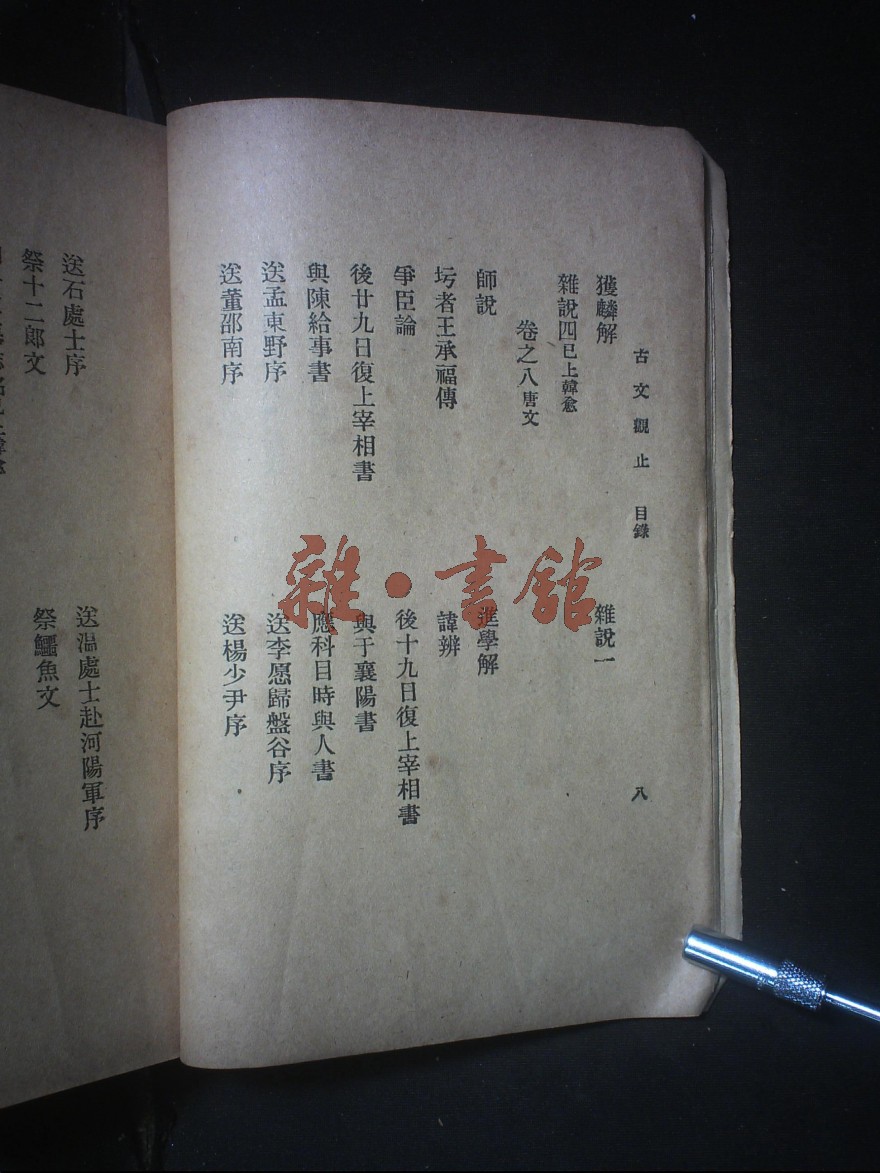 古文觀止 目錄 八
獲麟解 雜說一
雜說四已上韓愈
卷之八唐文
師說 進學解
圬者王承福傳 諱辨
爭臣論 後十九日復上宰相書
後廿九日復上宰相書 與于襄陽書
與陳給事書 應科目時與人書
送孟東野序 送李愿歸盤谷序
送董邵南序 送楊少尹序
送石處士序 送温處士赴河陽軍序
祭十二郎文 祭鱷魚文
雜·書館